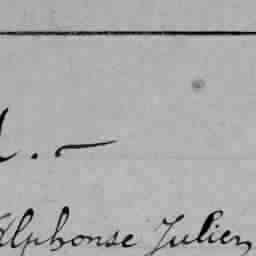 . –
Alphonse Julien